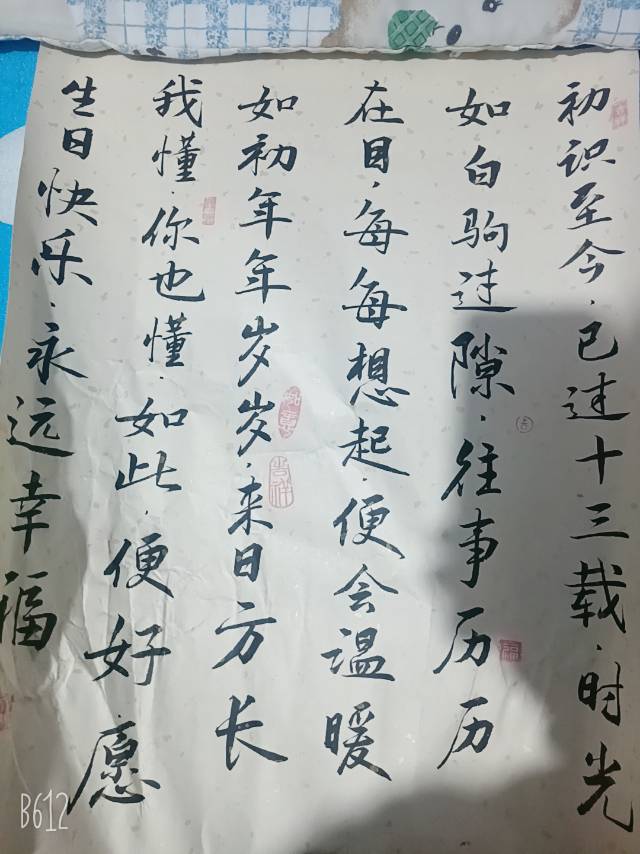 初识至今，已过十三载，时光
如白驹过隙，往事历历
在目，每每想起，便会温暖
如初年年岁岁，来日方长
我懂，你也懂，如此，便好，愿
生日快乐，永远幸福
吉祥
福
B612